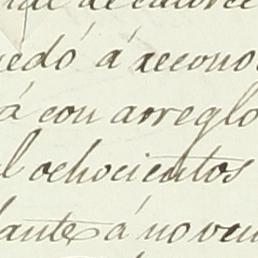 de catorce
quedó á recono
á con arreglo
l ochocientos
lante á noven